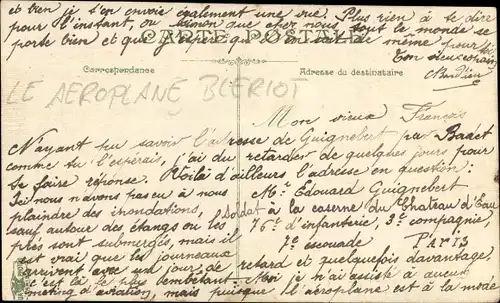 et bien je t'en envoie également une vue. Plus rien à te dire
pour l'instant, ou sinon que chez nous tout le monde se
porte bien et que j'espère qu'il en est de même pour toi.
Ton vieux copain
CARTE POSTALE
Correspondance
Adresse du destinataire
LE AEROPLANE BLERIOT
Mon vieux François
N'ayant pu savoir l'adresse de Guignebert par Badet
comme tu l'espérais, j'ai du retarder de quelques jours pour
te faire réponse. Voilà d'ailleurs l'adresse en question:
Mr Edouard Guignebert
soldat à la caserne du Château d'Eau
76e d'infanterie, 3e compagnie,
7e escouade PARIS
Ici nous n'avons pas eu à nous
plaindre des inondations,
sauf autour des étangs où les
prés sont submergés, mais il
est vrai que les journaux
arrivent avec un jour de retard et quelquefois davantage,
c'est là le plus embêtant. Moi je n'ai assisté à aucun
meeting d'aviation, mais puisque l'aéroplane est à la mode